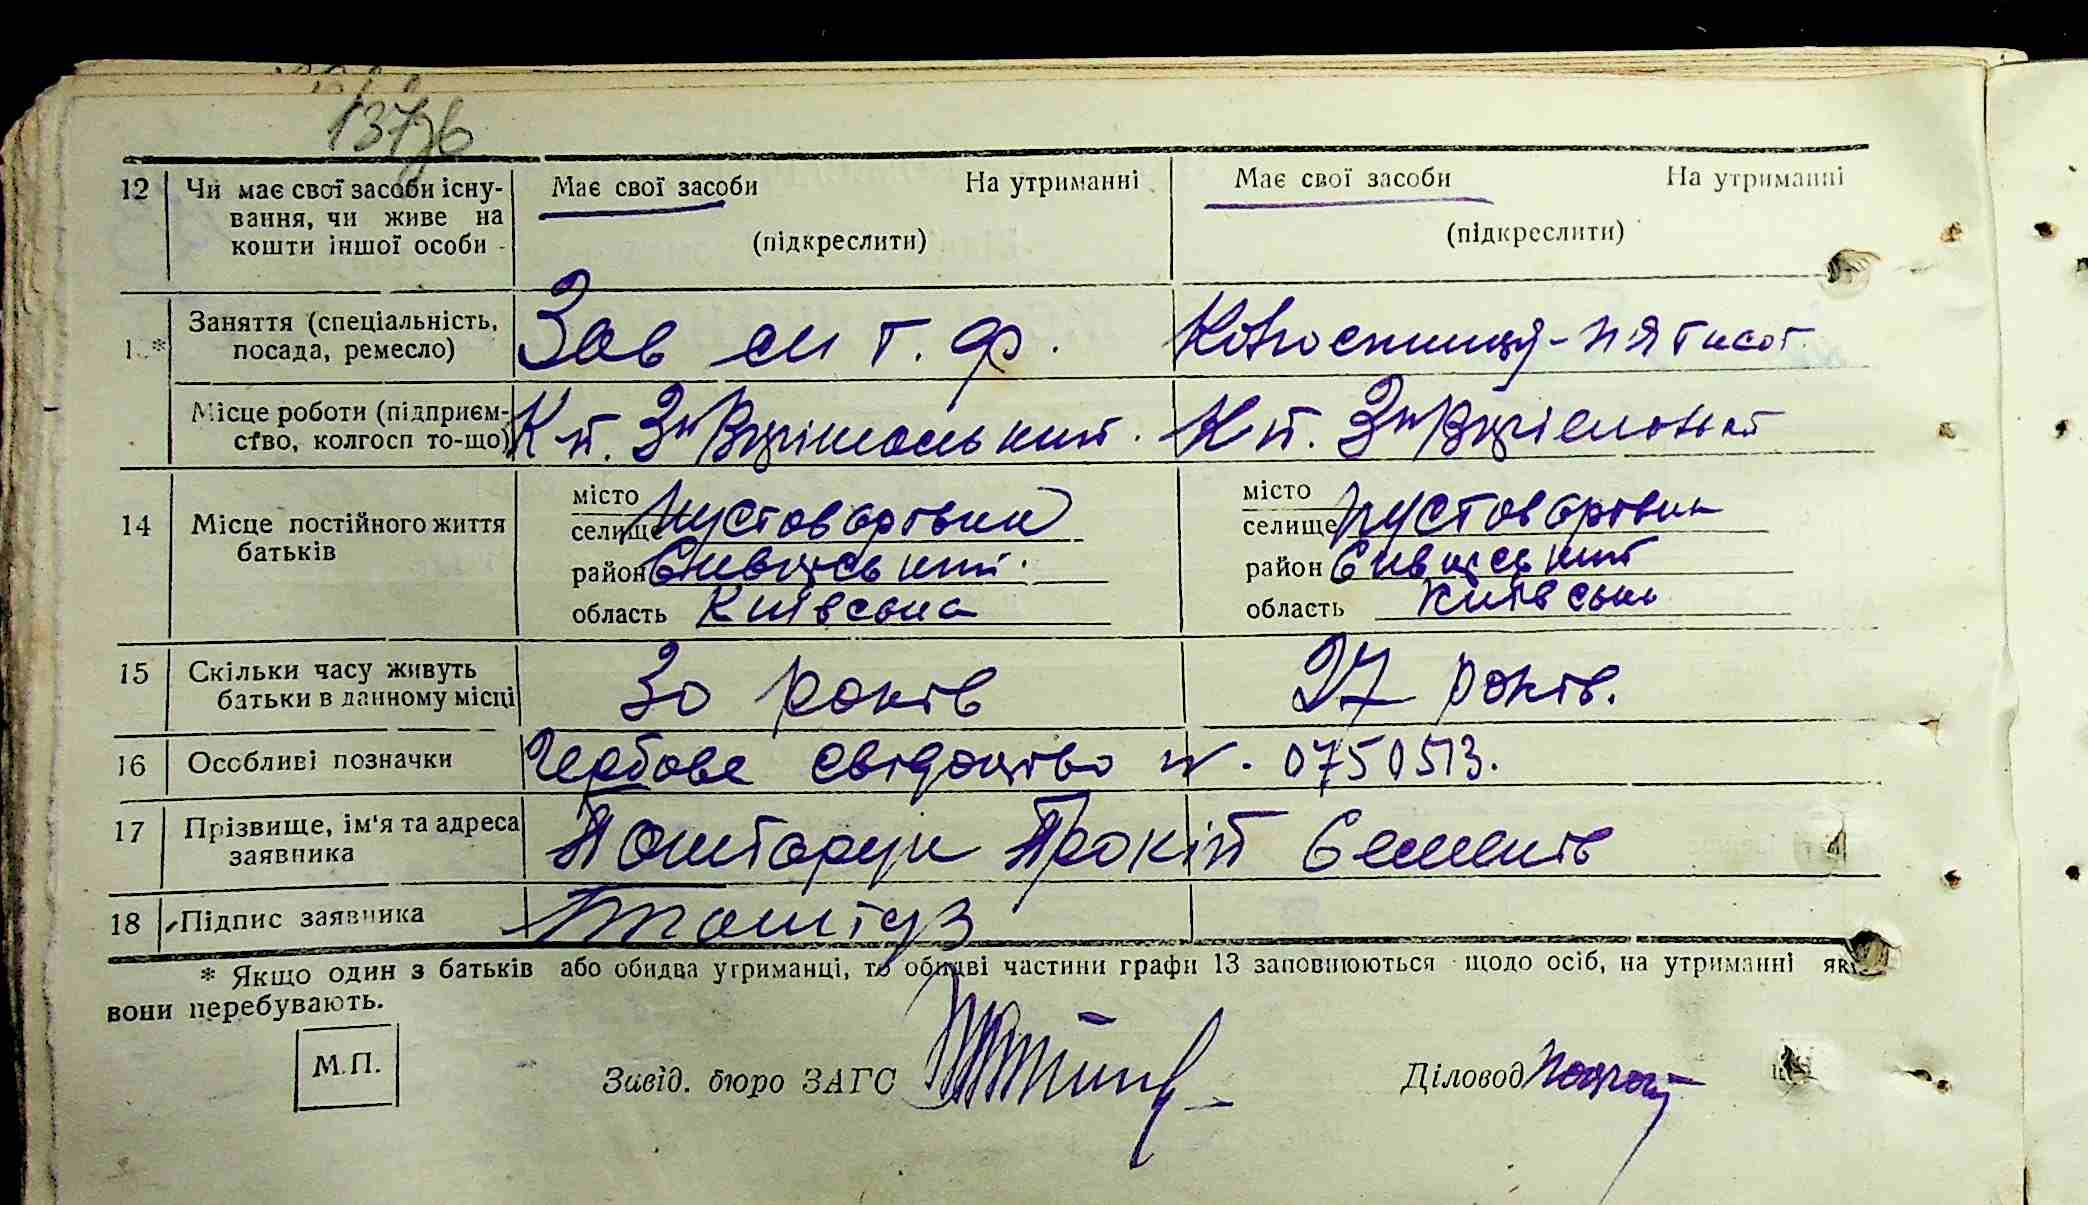 137зв
12 Чи має свої засоби існу- Має свої засоби На утриманні Має свої засоби На утриманні
вання, чи живе на
кошти іншої особи (підкреслити) (підкреслити)
Заняття (спеціальність, Зав с м т. ф. Колгоспниця-пятисот.
посада, ремесло)
Місце роботи (підприєм- Кт.
ство, колгосп то-що) Кт.
14 Місце постійного життя місто місто
батьків селище Пустоварівка селище Пустоварівка
район район
область Київська область Київська
15 Скільки часу живуть 30 років 27 років.
батьки в данному місці
16 Особливі позначки Гербове свідоцтво н. 0750513.
17 Прізвище, ім'я та адреса Поштарук Прокіп Семенів
заявника
18 Підпис заявника
* Якщо один з батьків або обидва утриманці, то обидві частини графи 13 заповнюються щодо осіб, на утриманні яких
вони перебувають.
М.П. Завід. бюро ЗАГС Діловод